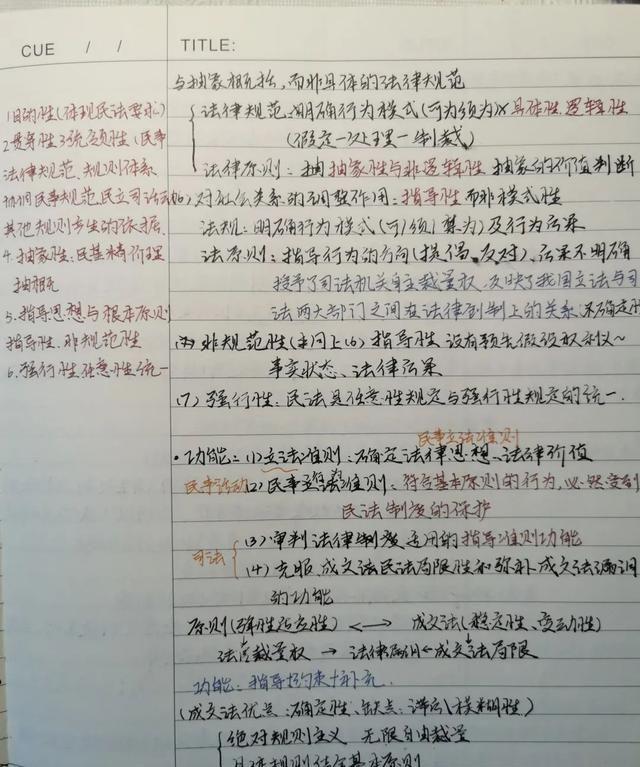 CUE / /
TITLE:
1目的性(体现民法要求)
2贯穿性 3统领性(民事
法律规范、规则体系
协调民事规范,民立司法活动
其他规则产生的依据.
4.抽象性:民基精价理
抽概
5.指导思想与根本原则
指导性、非规范性
6.强行性任意性统一
与抽象相包括,而非具体的法律规范
法律规范:明确行为模式(可为须为)具体性逻辑性
(假定一处理一制裁)
法律原则:抽象性与非逻辑性 抽象的价值判断
(6)对社会关系的调整作用:指导性而非模式性
法规:明确行为模式(可/须/禁为)及行为后果
法原则:指导行为的方向(提倡、反对),后果不明确
授予了司法机关自主裁量权,反映了我国立法与司
法两大部门之间在法律创制上的关系,不确定性
非规范性(主同上(6)指导性,没有预先假设权利义~
事实状态、法律后果
(7)强行性:民法是任意性规定与强行性规定的统一.
民事立法准则
·功能:(1)立法准则:确定法律思想、法律价值
民事活动(2)民事活动准则:符合基本原则的行为,必然受到
民法制度的保护
司法
(3)审判法律制度适用的指导准则功能
(4)克服成文法民法局限性和弥补成文法漏洞
的功能
原则(弹性适应性)<—>成文法(稳定性、变动性)
法官裁量权→法律原则←成文法局限
功能:指导+约束+补充.
(成文法优点:确定性、缺点:滞后、模糊性)
绝对规则主义 无限自由裁量